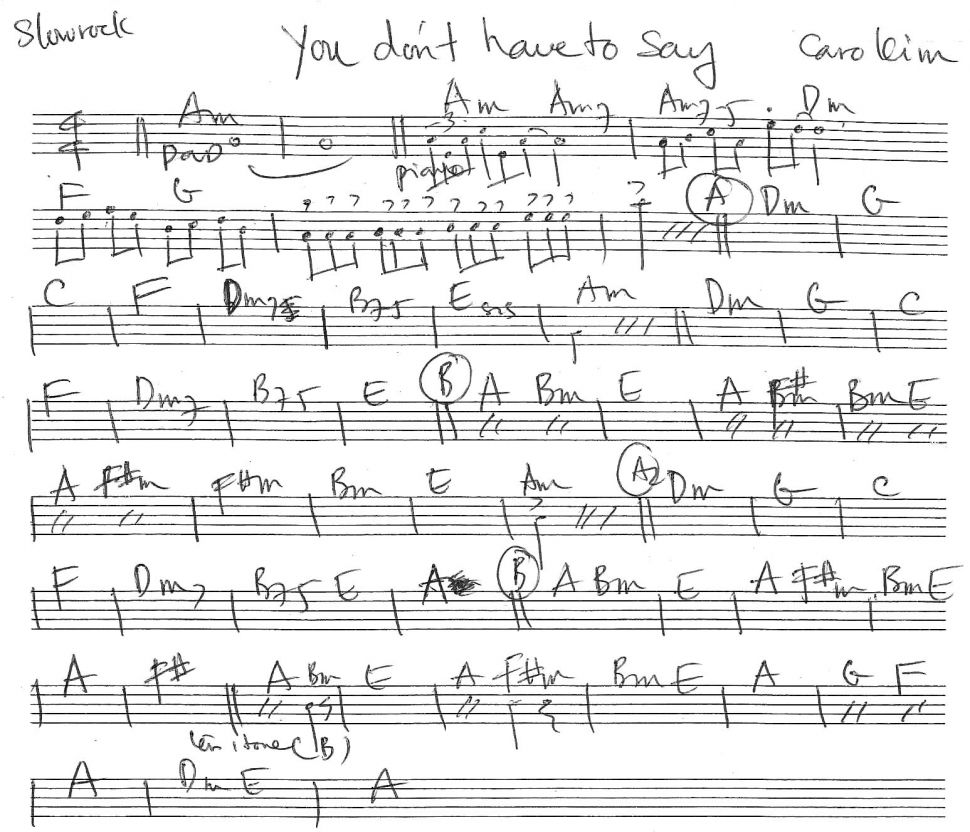 Slowrock You don't have to say Carol kim
Am Am Am7 Am7-5 Dm
pad 3 piano
F G A Dm G
C F Dm7 B75 E sus Am Dm G C
F Dm7 B75 E B A Bm E A B#m Bm E
A F#m F#m Bm E Am A2 Dm G C
F Dm7 B75 E A B A Bm E A F#m Bm E
A F# A Bm E A F#m Bm E A G F
1 tone (B)
A Dm E A